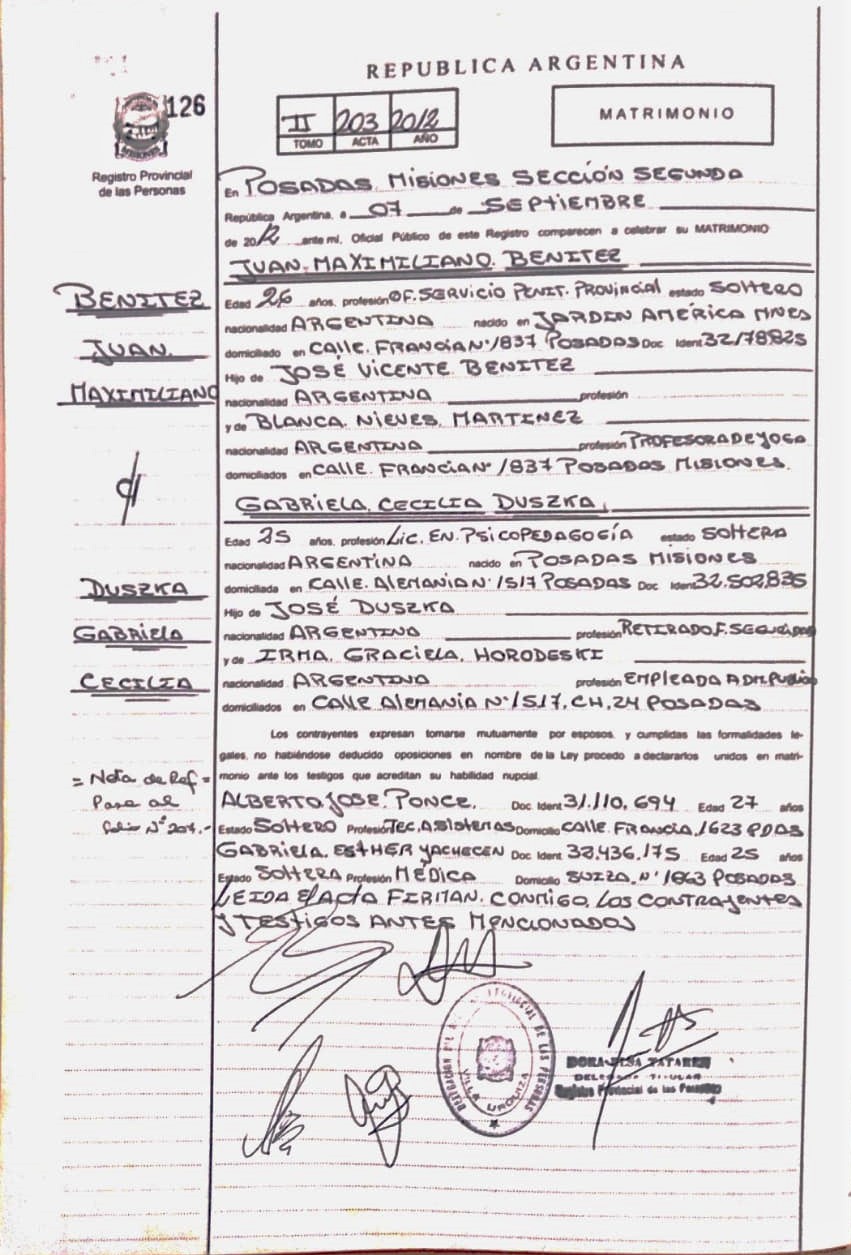 REPUBLICA ARGENTINA
126
II 203 2012
TOMO ACTA AÑO
MATRIMONIO
Registro Provincial
de las Personas
En POSADAS MISIONES SECCIÓN SEGUNDA
República Argentina, a 07 de SEPTIEMBRE
de 2012 ante mi, Oficial Público de este Registro comparecen a celebrar su MATRIMONIO
JUAN MAXIMILIANO BENITEZ
BENITEZ
JUAN
MAXIMILIANO
Edad 26 años, profesión OF. SERVICIO PENIT. PROVINCIAL estado SOLTERO
nacionalidad ARGENTINA nacido en JARDIN AMÉRICA MNES
domiciliado en CALLE. FRANCIA N° 1837 POSADAS Doc Ident 32178825
Hijo de JOSÉ VICENTE BENITEZ
nacionalidad ARGENTINA profesión
y de BLANCA. NIEVES. MARTINEZ
nacionalidad ARGENTINA profesión PROFESORA DE YOGA
domiciliados en CALLE. FRANCIA N° 1837 POSADAS MISIONES.
GABRIELA. CECILIA DUSZKA.
Edad 25 años, profesión Lic. EN. PSICOPEDAGOGÍA estado SOLTERA
nacionalidad ARGENTINA nacido en POSADAS MISIONES
DUSZKA
GABRIELA
CECILIA
domiciliada en CALLE. ALEMANIA N° 1517 POSADAS Doc Ident 32.502.835
Hijo de JOSÉ DUSZKA
nacionalidad ARGENTINA profesión RETIRADO F. SEGURIDAD
y de IRMA. GRACIELA. HORODESKI
nacionalidad ARGENTINA profesión EMPLEADA ADM. PUBLICA
domiciliados en CALLE ALEMANIA N° 1517. CH. 24 POSADAS
Los contrayentes expresan tomarse mutuamente por esposos, y cumplidas las formalidades le-
gales, no habiéndose deducido oposiciones en nombre de la Ley procedo a declararlos unidos en matri-
monio ante los testigos que acreditan su habilidad nupcial.
= Nota de Ref =
Pasa al
folio N° 207.-
ALBERTO JOSE. PONCE. Doc Ident 31.110.694 Edad 27 años
Estado SOLTERO Profesión TEC. A. SISTEMAS Domicilio CALLE. FRANCIA. 1623 PDAS
GABRIELA. ESTHER YACHECEN Doc Ident 32.436.175 Edad 25 años
Estado SOLTERA Profesión MÉDICA Domicilio SUIZA. N° 1863 POSADAS
LEIDA EL ACTA FIRMAN. CONMIGO, LOS CONTRAYENTES
Y TESTIGOS ANTES MENCIONADOS
PROVINCIAL DE LAS PERSONAS
VILLA URQUIZA
DORA ELSA
TITULAR
Registro Provincial de las Personas